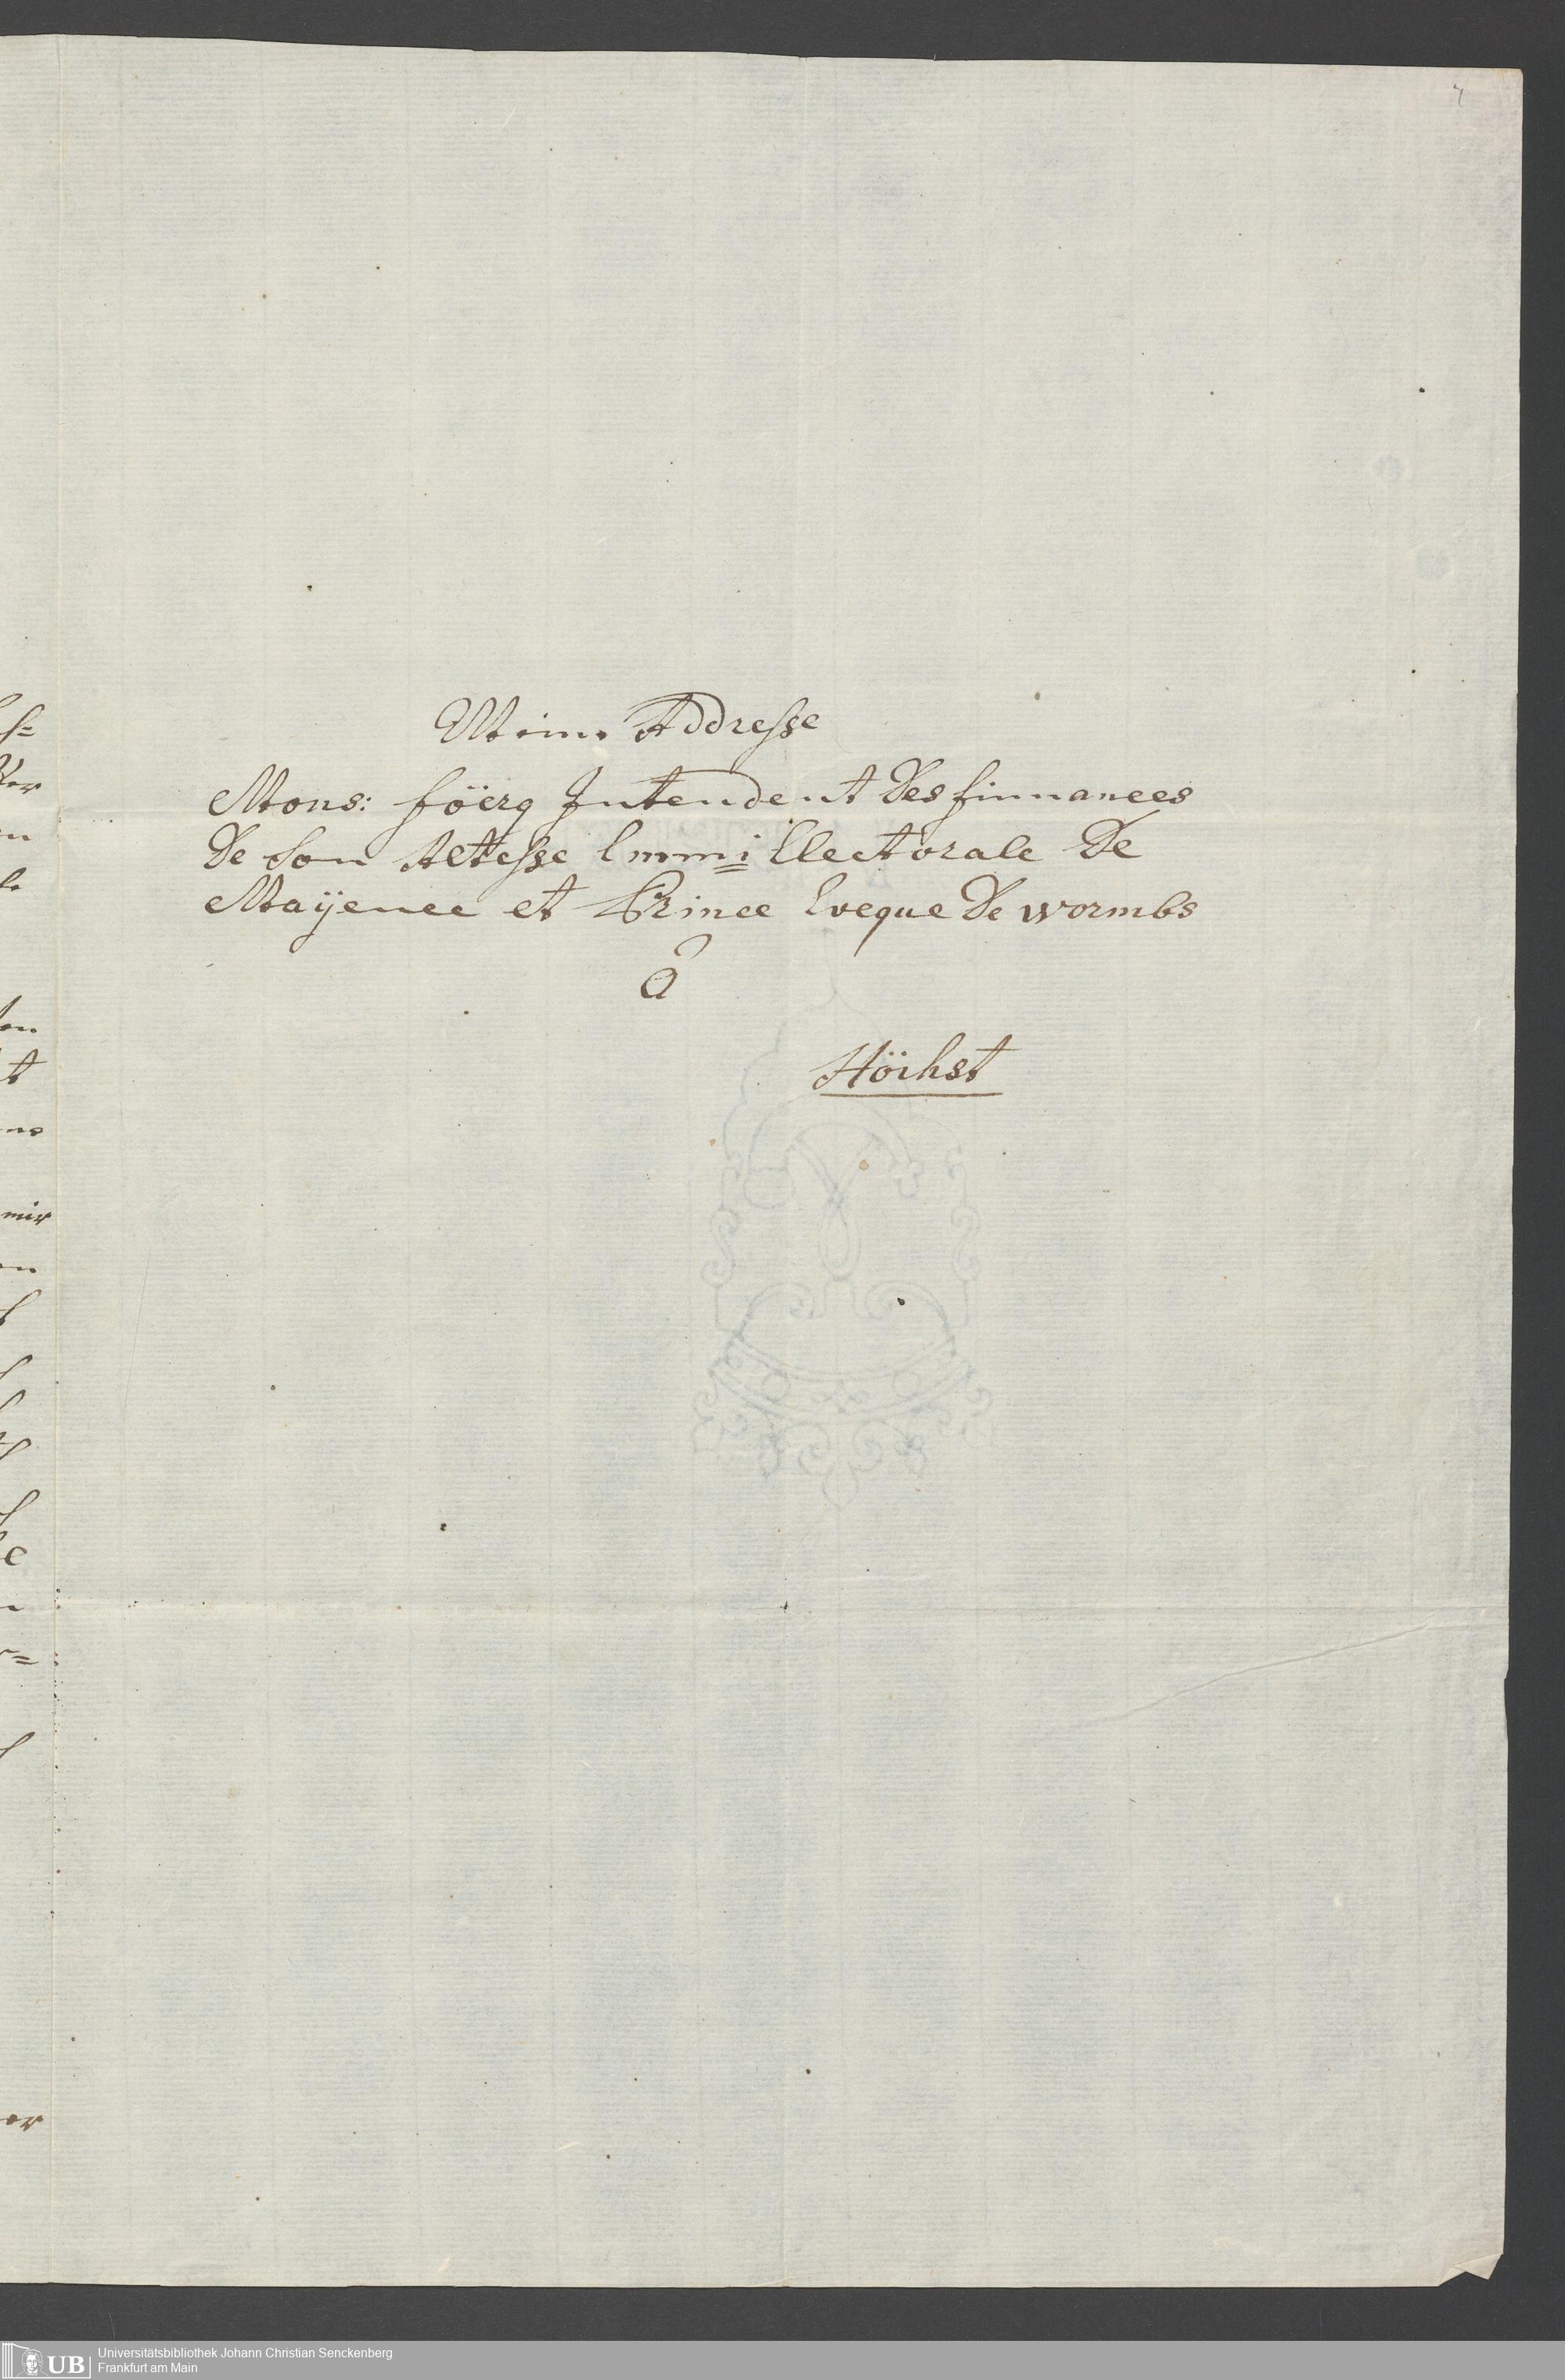 7
Meine Addresse
Mons: föerg Intendent Des finnances
De Son Altesse Emmi Electorale De
Mayence et Prince Eveque De wormbs
â
Höchst
mir
UB Universitätsbibliothek Johann Christian Senckenberg
Frankfurt am Main